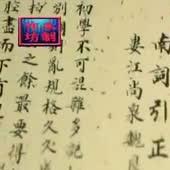 南詞引正
婁江尚泉魏良
初學不可混雜多記
別
亂規格久久
之餘最要得
腔
盡而下